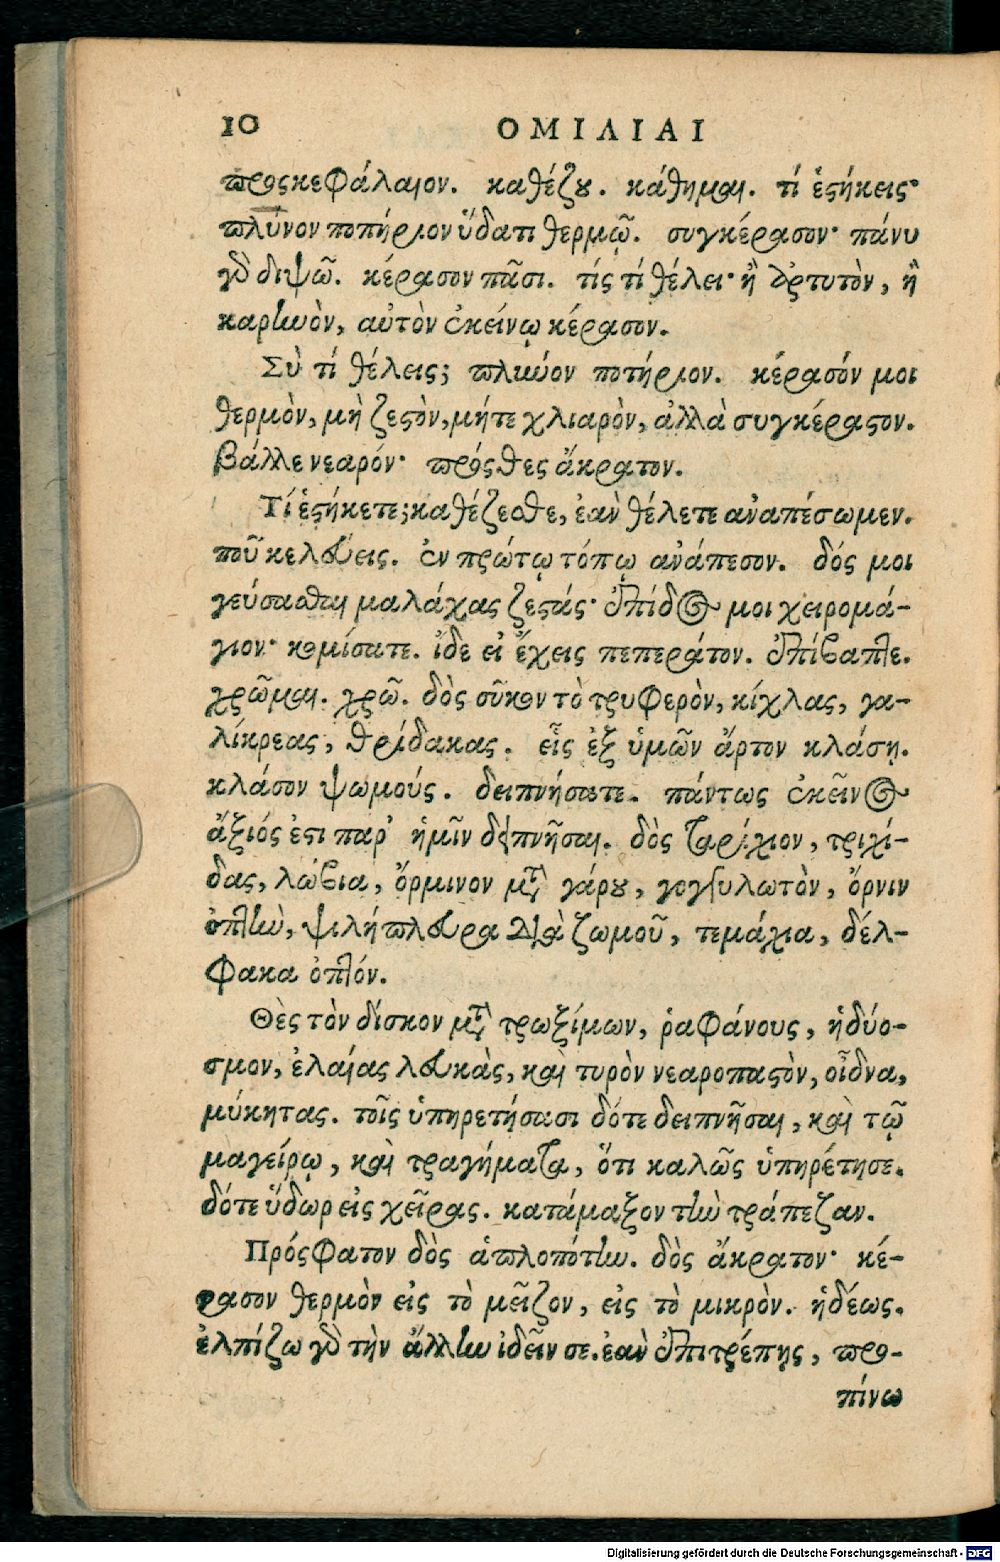 10 ΟΜΙΛΙΑΙ
προςκεφάλαιον. καθέζου. κάθημαι. τί ἑστήκεις·
πλύνον ποπήριον ὕδατι θερμῷ. συγκέρασον· πάνυ
γὰρ διψῶ. κέρασον πᾶσι. τίς τί θέλει· ἢ ἀρτυτὸν, ἢ
καρηνὸν, αὐτὸν ἐκείνῳ κέρασον.
Σὺ τί θέλεις; πλῦνον ποτήριον. κέρασόν μοι
θερμὸν, μὴ ζεστὸν, μήτε χλιαρὸν, ἀλλὰ συγκέρασον.
βάλλε νεαρόν· πρόσθες ἄκρατον.
Τί ἑστήκετε; καθέζεσθε, ἐὰν θέλετε ἀναπέσωμεν.
ποῦ κελεύεις. ἐν πρώτῳ τόπῳ ἀνάπεσον. δός μοι
γεύσασθαι μαλάχας ζεστάς· ἐπίδος μοι χειρομά-
γιον· κομίσατε. ἰδε εἰ ἔχεις πεπεράτον. ἐπίβαπτε.
χρῶμαι. χρῶ. δὸς σῦκον τὸ τρυφερὸν, κίχλας, γα-
λίκρεας, θρίδακας. εἷς ἐξ ὑμῶν ἄρτον κλάσῃ.
κλάσον ψωμούς. δειπνήσατε. πάντως ἐκεῖνος
ἄξιός ἐστι παρ' ἡμῖν δειπνῆσαι. δὸς ταρίχιον, τριχί-
δας, λώβια, ὄρμινον μετὰ γάρου, γογγυλωτὸν, ὄρνιν
ὀπτὴν, ψιλήπλευρα διὰ ζωμοῦ, τεμάχια, δέλ-
φακα ὀπτόν.
Θὲς τὸν δίσκον μετὰ τρωξίμων, ῥαφάνους, ἡδύο-
σμον, ἐλαίας λευκὰς, καὶ τυρὸν νεαροπαστὸν, οἶδνα,
μύκητας. τοῖς ὑπηρετήσασι δότε δειπνῆσαι, καὶ τῷ
μαγείρῳ, καὶ τραγήματα, ὅτι καλῶς ὑπηρέτησε.
δότε ὕδωρ εἰς χεῖρας. κατάμαξον τὴν τράπεζαν.
Πρόσφατον δὸς ἁπλοπότην. δὸς ἄκρατον· κέ-
ρασον θερμὸν εἰς τὸ μεῖζον, εἰς τὸ μικρὸν. ἡδέως.
ἐλπίζω γὰρ τὴν ἄλλην ἰδεῖν σε. ἐὰν ἐπιτρέπῃς, προ-
πίνω
Digitalisierung gefördert durch die Deutsche Forschungsgemeinschaft - DFG